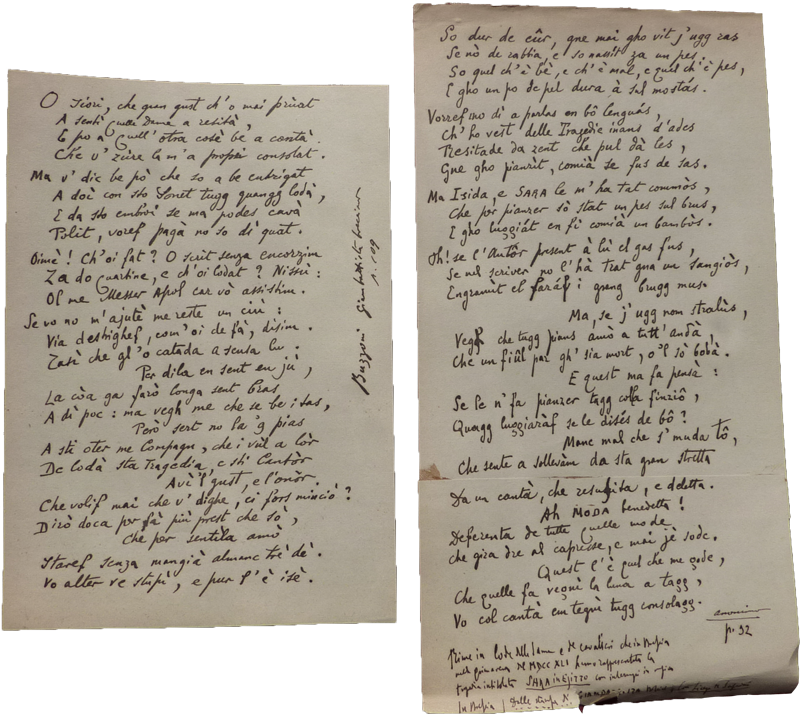 O Siori, che gran gust ch'o mai pruat
A sentì quelle Dame a resità,
E po a quell'otra cosè bè a cantà.
Che v' zúre la m'a propri consolat.
Ma v' dic be pò che so a be entrigat
A doì con sto Sonet tugg quangg lodà,
E da sto embroi se ma podes cavà
Polit, voref pagà no so di quat.
Oimè! Ch'oi fat? O scrit senza encorzim
Za do quartine, e ch'oi lodat? Nissú:
Ol me Messer Apol car vò assistim.
Se vo no m'ajutè me reste un ciú:
Via destrighef, com'oi de fà, disim.
Zasì che gl'o catada a scusa lu.
Per dila en sent en jù,
La còa ga farò longa sent bras
A dì poc: ma vegh me che se be i sas,
Però sert no la 'g pias
A sti oter me Compagn, che i vúl a lòr
De lodà sta Tragedia, e sti Cantòr
Avì 'l gust, e l'onòr.
Che volif mai che v' dighe, ci fors minciò?
Dirò doca per fà più prest che sò,
Che per sentila amò
Staref senza mangià almanc trè dè.
Vo alter ve stupì, e pur l'è isè.
Buzzoni Giambattista
p. 109
So dur de cûr, gne mai gho vit j'ugg ras
Se nò de rabbia, e so nassit za un pes.
So quel ch'è bè, e ch'è mal, e quel ch'è pes,
E gho un po de pel dura à sul mostás.
Vorref mo dì a parlas en bô lenguás,
Ch'ho vest delle Tragedie inans d'ades
Resitade da zent che pul dà les,
Gne gho pianzit, comià se fus de sas.
Ma Isida, e SARA le m'ha tat commòs,
Che per pianzer sò stat un pes sul brus,
E gho luggiát en fi comià un bambòs.
Oh! se l'Autòr present à lù el gas fus,
Se nel scriver no l'hà trat gna un sangiòs,
Engranuit el faráf i grang brugg mus.
Ma, se j'ugg nom stralùs,
Vegh che tugg pians amò a tutt'andà,
Che un fiûl par gh'sia mort, o 'l sò bobà.
E quest ma fa pensà:
Se le n' fa pianzer tugg colla finziô,
Quagg luggiaràf se le disés de bô?
Manc mal che s'muda tô,
Che sente a sollevàm da sta gran stretta
Da un cantà, che resuscita, e deletta.
Ah MODA benedetta!
Deferenta de tutte quelle mode
che gira dre al capresse, e mai jè sode.
Quest l'è quel che me gode,
Che quelle fa vegnì la luna a tagg,
Vo col cantà em tegnì tugg consolagg.
anonimo
p. 92
Rime in lode delle dame e de cavalieri che in Brescia
nel MDCCXLI
tragedia intitolata SARA in EGITTO con intermezzi in
In Brescia